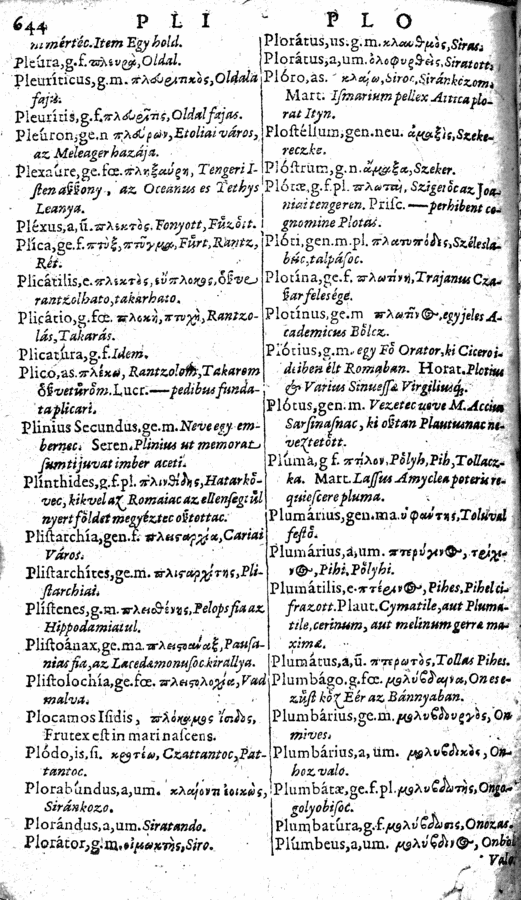 644 PLI PLO
ni mértéc. Item Egy hold.
Pleúra, g.f. πλευρὰ, Oldal.
Pleuríticus, g.m. πλευρετικὸς, Oldala
fajó.
Pleurîtis, g.f. πλευρῖτις, Oldal fajas.
Pleúron, ge.n πλεύρων, Etoliai város,
az Meleager hazája.
Plexaúre, ge.fœ. πληξαύρη, Tengeri I-
sten aßßony, az Oceanus es Tethys
Leanya.
Pléxus, a, ũ. πλεκτὸς. Fonyott, Fűzőit.
Plíca, ge.f. πτὺξ, πτῦγμα, Fűrt, Rantz,
Rét.
Plicátilis, e. πλεκτὸς, εὔπλοκος, őßve
rantzolhato, takarhato.
Plicátio, g.fœ. πλοκὴ, πτυχὴ, Rantzo-
lás, Takarás.
Plicatúra, g.f. Idem.
Plico, as. πλέκω, Rantzolom, Takarom
őßvetűrőm. Lucr. — pedibus funda-
ta plicari.
Plinius Secundus, ge.m. Neve egy em-
bernec. Seren. Plinius ut memorat
sumti juvat imber aceti.
Plínthides, g.f.pl. πλινθίδες, Hatarkő-
vec, kikvel az Romaiac az ellensegtűl
nyert főldet megyéztec oßtottac.
Plistarchía, gen.f. πλεισταρχία, Cariai
Város.
Plistarchîtes, ge.m. πλεισταρχίτης, Pli-
starchiai.
Plístenes, g.m. πλεισθένης, Pelops fia az
Hippodamiatul.
Plistoânax, ge.ma. πλειστοάναξ, Pausa-
nias fia, az Lacedæmonusoc kirallya.
Plistolochía, ge.fœ. πλειστολοχία, Vad
malva.
Plocamos Isidis, πλόκαμος ἴσιδος,
Frutex est in mari nascens.
Plódo, is, si. κροτέω, Czattantoc, Pat-
tantoc.
Plorabúndus, a, um. κλαίοντι ἐοικὼς,
Siránkozo.
Plorándus, a, um. Siratando.
Plorâtor, g.m. οἰμωκτὴς, Siro.
Plorâtus, us. g.m. κλαυθμὸς, Siras.
Plorâtus, a, um. ὀλοφυρθεὶς, Siratott.
Plóro, as. κλαίω, Siroc, Siránkozom.
Mart. Ismarium pellex Attica plo-
rat Ityn.
Plostéllum, gen.neu. ἁμαξὶς, Szeke-
reczke.
Plóstrum, g.n. ἅμαξα, Szeker.
Plótæ, g.f.pl. πλωταὶ, Szigetőc az Joa-
niai tengeren. Prisc. — perhibent co-
gnomine Plotas.
Plóti, gen.m.pl. πλατυπόδες, Széles la-
búc, talpásoc.
Plotína, ge.f. πλωτίνη, Trajanus Cza-
ßar felesége.
Plotínus, ge.m πλωτῖνος, egy jeles A-
cademicus Bőlcz.
Plótius, g.m. egy Fő Orator, ki Cicero i-
deiben élt Romaban. Horat. Plotius
& Varius Sinuessæ Virgiliusq́.
Plótus, gen.m. Vezetec neve M. Accius
Sarsinasnac, ki oßtan Plautusnac ne-
veztetőtt.
Plúma, g f. πτίλον, Pőlyh, Pih, Tollacz-
ka. Mart. Lassus Amyclea poteris re-
quiescere pluma.
Plumárius, gen.ma. ὑφαύτης, Tolúval
festő.
Plumárius, a, um. πτερύγινος, τρίχι-
νος, Pihi, Pőlyhi.
Plumátilis, e. πτέρινος, Pihes, Pihel ci-
frazott. Plaut. Cymatile, aut Pluma-
tile, cerinum, aut melinum gerræ ma-
ximæ.
Plumátus, a, ũ. πτερωτὸς, Tollas Pihes.
Plumbágo, g.fœ. μολύβδαινα, On es e-
zűst kőz Eér az Bánnyaban.
Plumbárius, ge.m. μολυβδουργὸς, On
mives.
Plumbárius, a, um. μολυβδικὸς, On-
hoz valo.
Plumbátæ, ge.f.pl. μολυβδωτὴς, Ongo-
golyobisoc.
Plumbatúra, g.f. μολύβδωσις, Onozas.
Plúmbeus, a, um. μολύβδινος, Onból
Valo